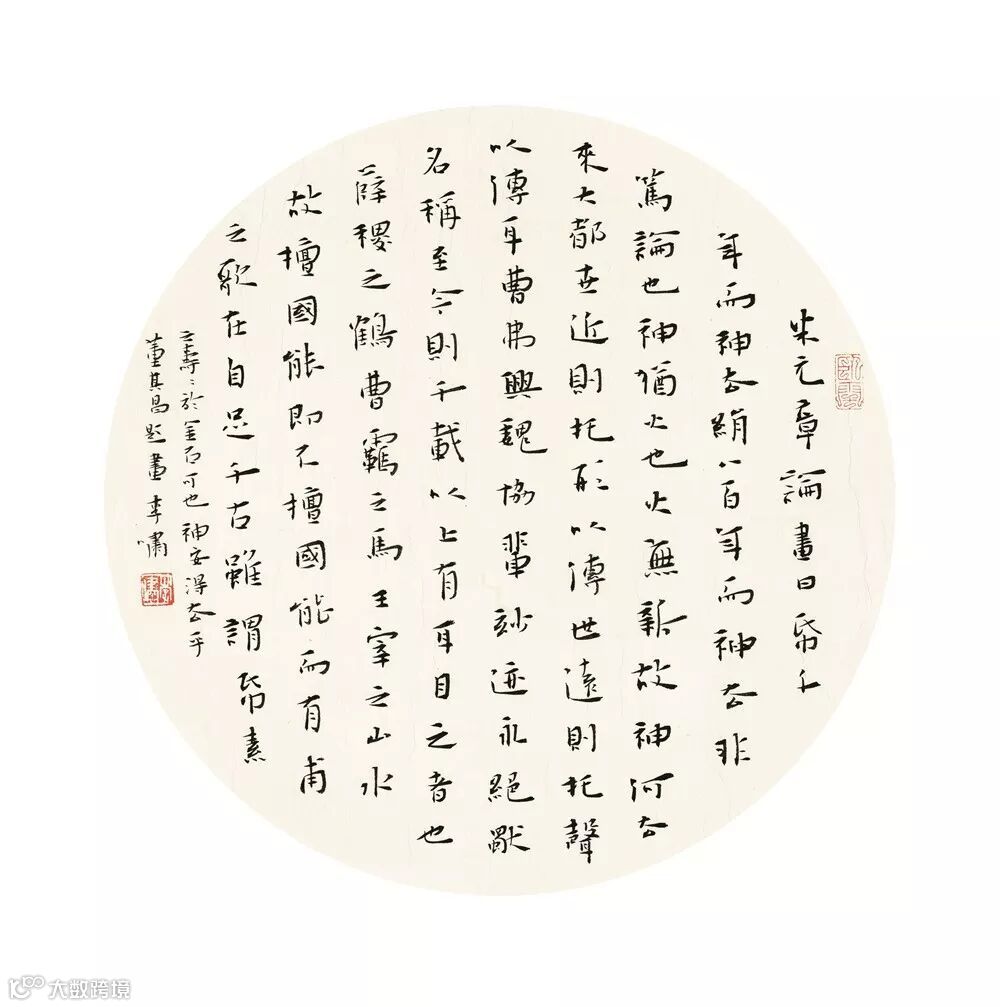 米元章論畫曰帋千
年而神去絹八百年而神去非
篤論也神猶火也火無新故神何去
來大都世近則托形以傳世遠則托聲
以傳耳曹弗興魏協輩妙迹永絕獸
名稱至今則千載以上有耳目之者也
薛稷之鶴曹霸之馬王宰之山水
故擅國能即不擅國能而有甫
之歌在自足千古雖謂帋素
之壽壽於金石可也神安得去乎
董其昌題畫 李嘯
大数跨境